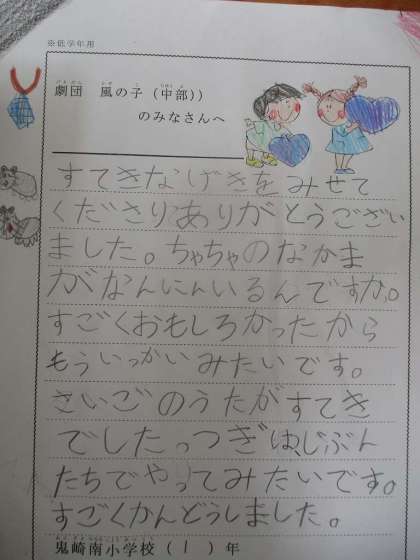 ※低学年用
劇団 風の子（中部））
のみなさんへ
すてきなげきをみせて
くださりありがとうござい
ました。ちゃちゃのなかま
がなんにんいるんですか。
すごくおもしろかったから
もういっかいみたいです。
さいごのうたがすてき
でした。つぎは、じぶん
たちでやってみたいです。
すごくかんどうしました。
鬼崎南小学校（1）年